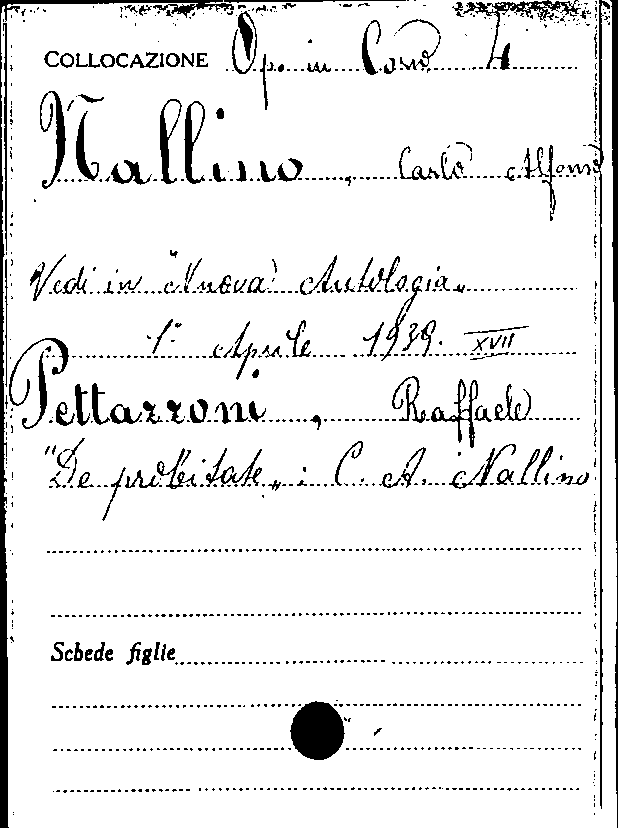 COLLOCAZIONE Op. in Corso 4
Nallino, Carlo Alfonso
Vedi in "Nuova Antologia"
1° Aprile 1939. XVII
Pettazzoni, Raffaele
"De probitate" : C. A. Nallino
Schede figlie